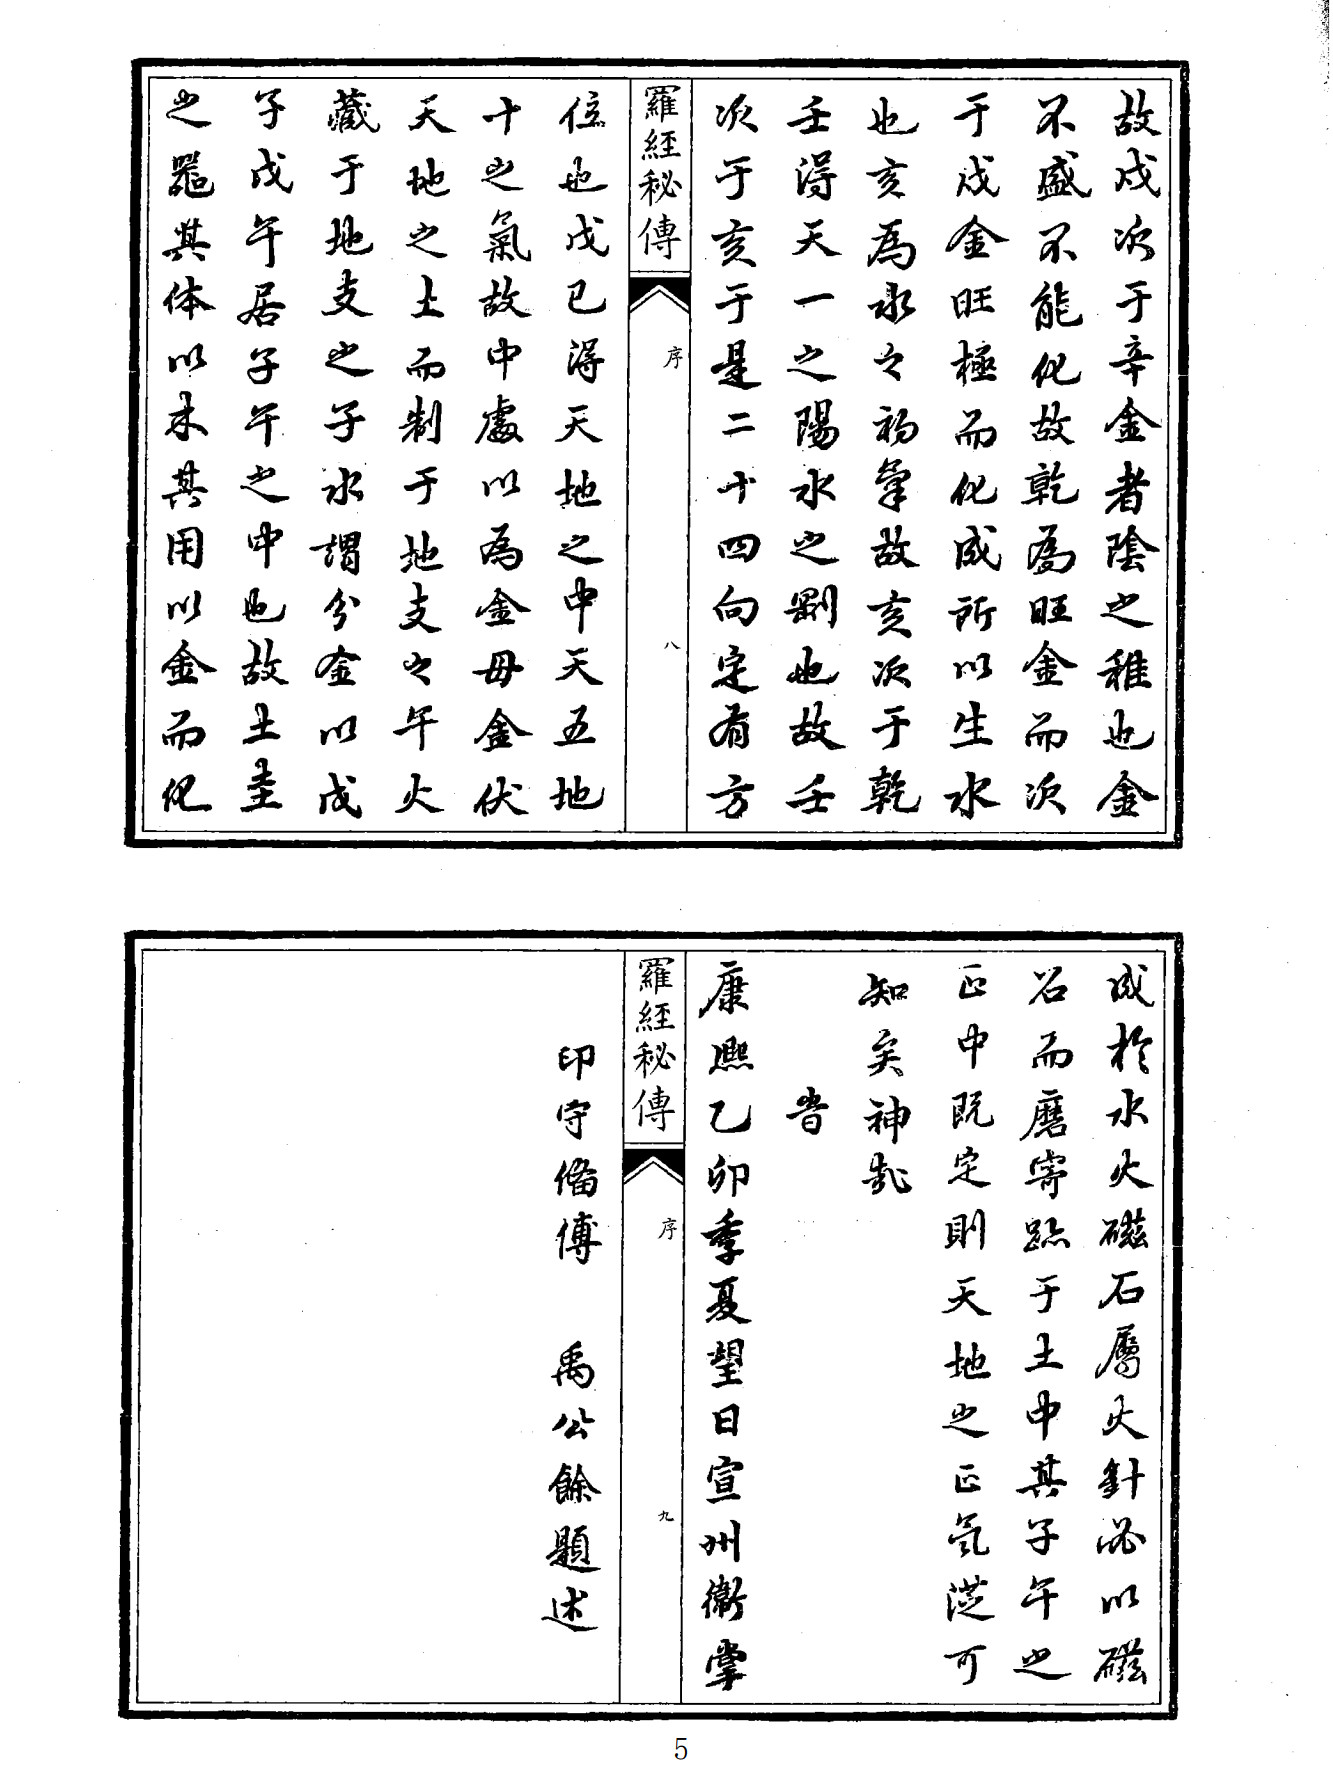 故戌次于辛金者陰之稚也金
不盛不能化故乾為旺金而次
于戌金旺極而化成所以生水
也亥為水之初氣故亥次于乾
壬得天一之陽水之剛也故壬
次于亥于是二十四向定有方
羅經秘傳
序
八
位也戊已得天地之中天五地
十之氣故中處以為金母金伏
天地之土而制于地支之午火
藏于地支之子水謂分金以戊
子戊午居子午之中也故土圭
之器其体以木其用以金而化
成於水火磁石屬火針必以磁
石而磨寄跡于土中其子午之
正中既定則天地之正氣從可
知矣神哉
旹
康熙乙卯季夏望日宣州衛掌
羅經秘傳
序
九
印守備傅 禹公餘題述
5